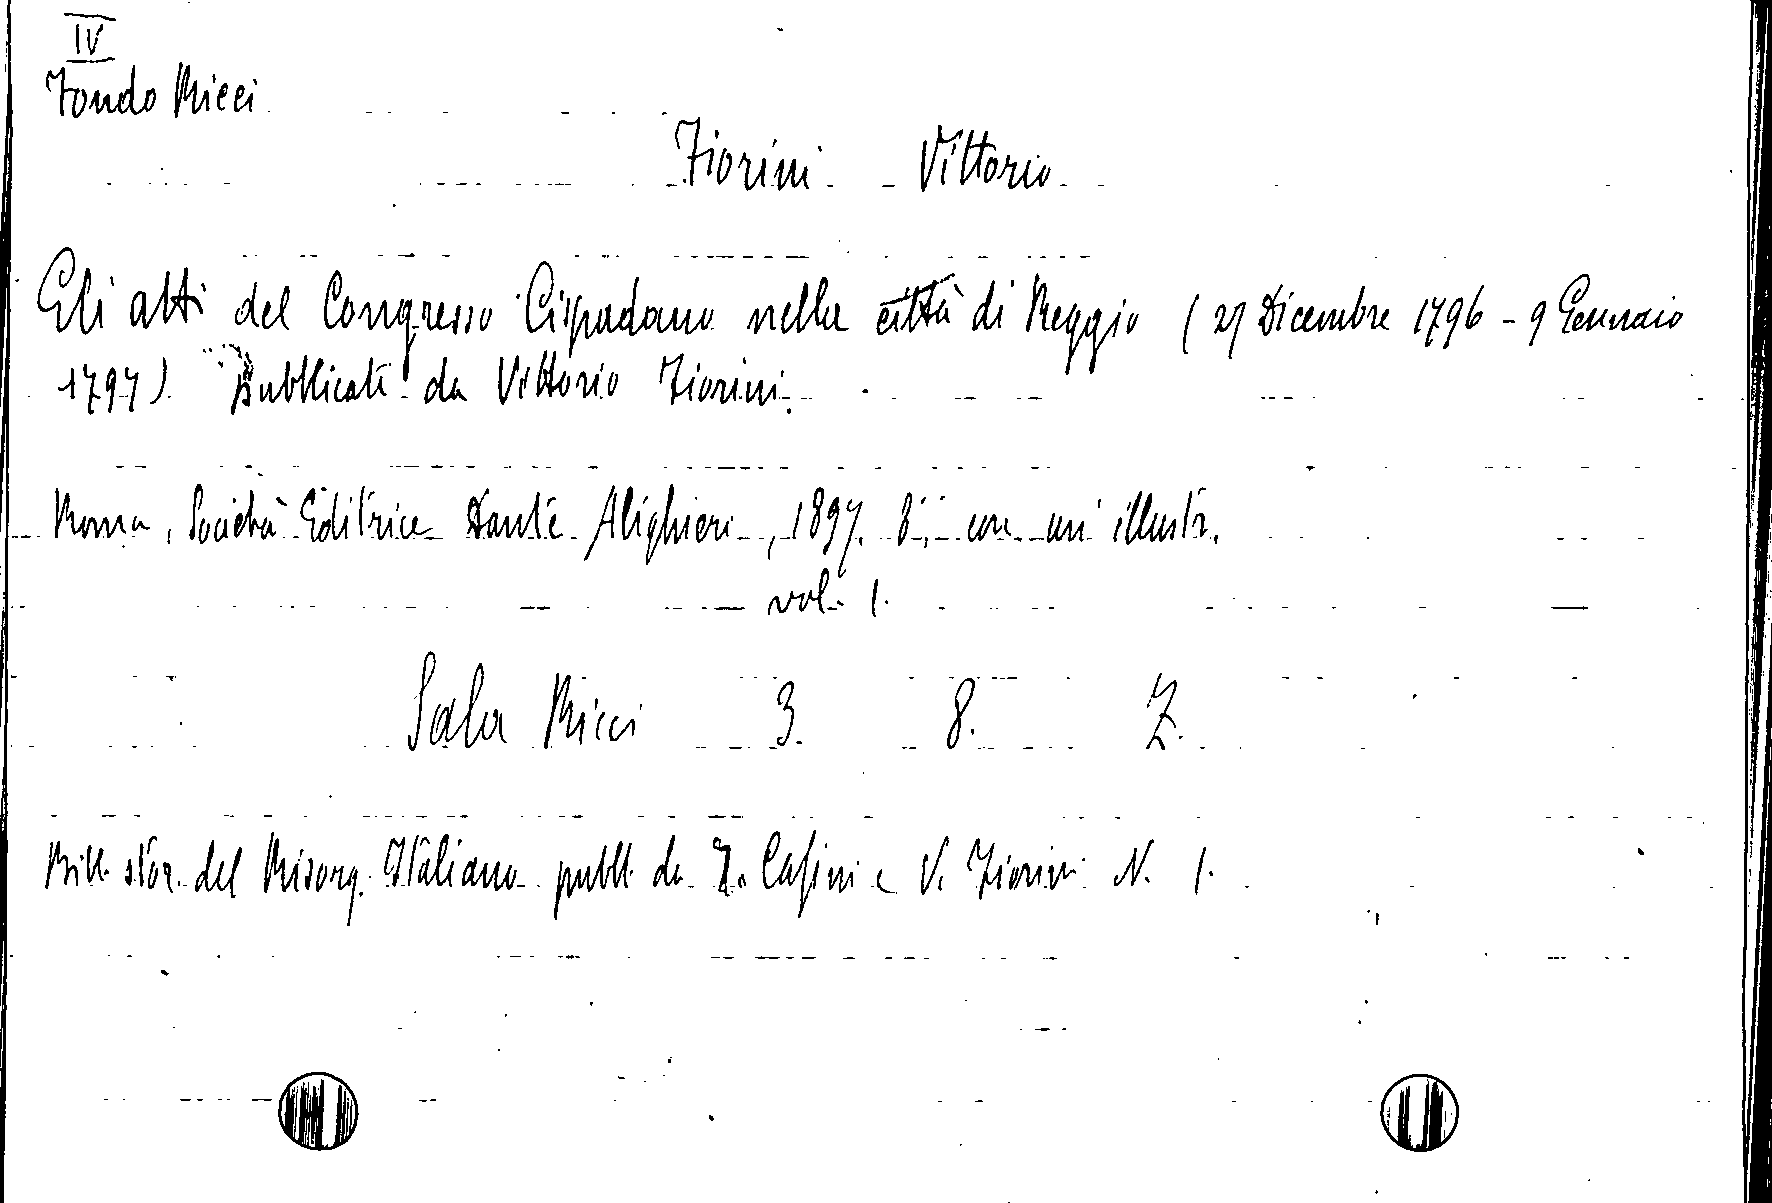 IV
Fondo Ricci
Fiorini Vittorio
Gli atti del Congresso Cispadano nella città di Reggio (27 Dicembre 1796 - 9 Gennaio
1797) Pubblicati da Vittorio Fiorini.
Roma, Società Editrice Dante Alighieri, 1897. 8°, con un' illustr.
vol. 1.
Sala Ricci 3. 8. 7.
Bibl. stor. del Risorg. Italiano publl. da T. Casini e V. Fiorini N. 1.